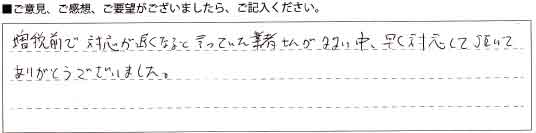 ■ご意見、ご感想、ご要望がございましたら、ご記入ください。
増税前で対応が遅くなると言っていた業者さんが多い中、早く対応して頂いて
ありがとうございました。